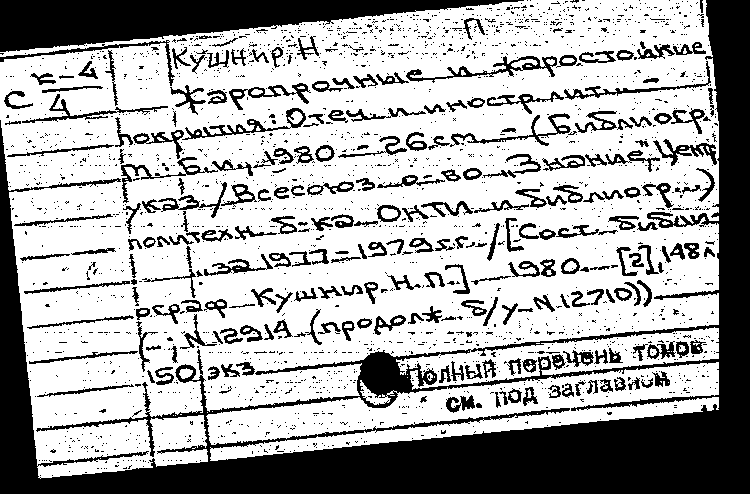 Кушнир, Н П
С к-4
4
Жаропрочные и жаростойкие
покрытия: Отеч. и иностр. лит. -
М.: Б.и., 1980. - 26 см. - (Библиогр.
указ. / Всесоюз. о-во "Знание", Центр.
политехн. б-ка. ОНТИ и библиогр...)
... за 1977-1979 гг. / [Сост. библи-
ограф Кушнир Н.П.]. 1980. [2], 148 л.
(-; N 12914 (продолж. б/у N 12710))
150 экз.
Полный перечень томов
см. под заглавием